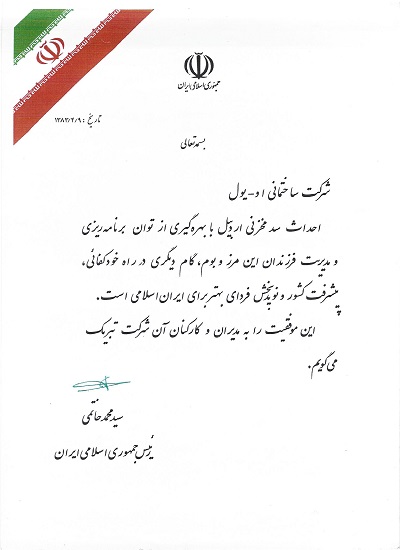 جمهوری اسلامی ایران
تاریخ : ۱۳۸۳/۴/۹
بسمه تعالی
شرکت ساختمانی او-یول
احداث سد مخزنی اردبیل با بهره‌گیری از توان برنامه‌ریزی
و مدیریت فرزندان این مرز و بوم، گام دیگری در راه خودکفائی،
پیشرفت کشور و نویدبخش فردای بهتر برای ایران اسلامی است.
این موفقیت را به مدیران و کارکنان آن شرکت تبریک
می‌گویم.
سید محمد خاتمی
رئیس جمهوری اسلامی ایران